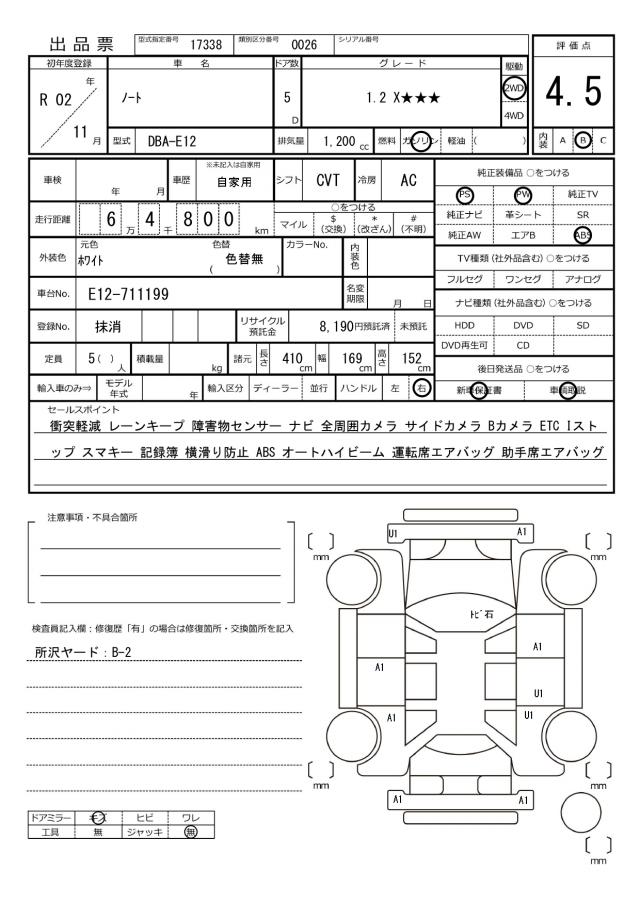 出品票 型式指定番号 17338 類別区分番号 0026 シリアル番号
評価点
4.5
内装 A B C
初年度登録 車名 ドア数 グレード 駆動
R 02 年 11 月
ノート 5 D 1.2 X★★★ 2WD
4WD
型式 DBA-E12 排気量 1,200 cc 燃料 ガソリン 軽油 ( )
車検 年 月 車歴 ※未記入は自家用 自家用 シフト CVT 冷房 AC
走行距離 6 万 4 千 8 0 0 km
○をつける
マイル $ (交換) * (改ざん) # (不明)
外装色 元色 ホワイト 色替 ( 色替無 ) カラーNo. 内装色
車台No. E12-711199 名変期限 月 日
登録No. 抹消 リサイクル預託金 8,190円預託済 未預託
定員 5 ( ) 人 積載量 kg 諸元 長さ 410 cm 幅 169 cm 高さ 152 cm
輸入車のみ⇒ モデル年式 年 輸入区分 ディーラー 並行 ハンドル 左 右
純正装備品 ○をつける
PS PW 純正TV
純正ナビ 革シート SR
純正AW エアB ABS
TV種類 (社外品含む) ○をつける
フルセグ ワンセグ アナログ
ナビ種類 (社外品含む) ○をつける
HDD DVD SD
DVD再生可 CD
後日発送品 ○をつける
新車保証書 車輌取説
セールスポイント
衝突軽減 レーンキープ 障害物センサー ナビ 全周囲カメラ サイドカメラ Bカメラ ETC Iスト
ップ スマキー 記録簿 横滑り防止 ABS オートハイビーム 運転席エアバッグ 助手席エアバッグ
注意事項・不具合箇所
検査員記入欄：修復歴「有」の場合は修復箇所・交換箇所を記入
所沢ヤード：B-2
ドアミラー キズ ヒビ ワレ
工具 無 ジャッキ 無
U1 A1
〔 〕 mm 〔 〕 mm
トビ石
A1
A1
U1
A1 U1
〔 〕 mm 〔 〕 mm
A1 A1
〔 〕 mm